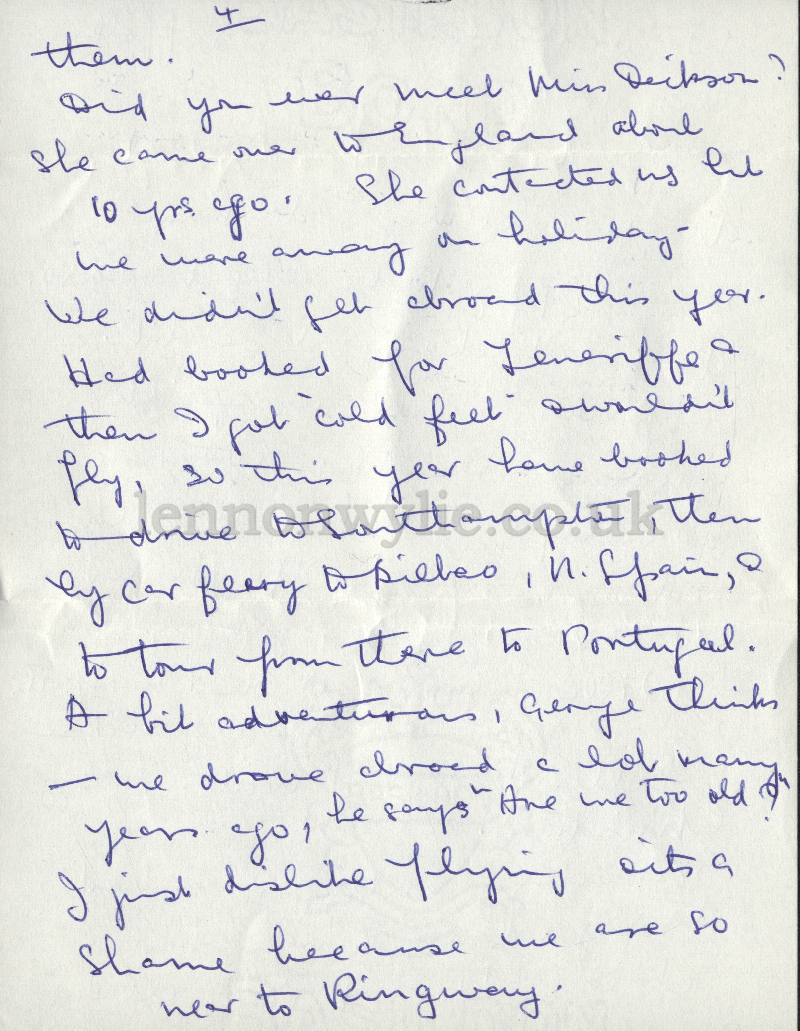 4
them.
Did you ever meet Miss Dickson?
She came over to England about
10 yrs. ago. She contacted us but
we were away on holiday -
We didn't get abroad this year.
Had booked for Teneriffe &
then I got "cold feet" & wouldn't
fly, so this year have booked
to drive to Southampton, then
by car ferry to Bilbao, N. Spain, &
to tour from there to Portugal.
A bit adventurous, George thinks
— we drove abroad a lot many
years ago, he says "Are we too old?"
I just dislike flying & its a
shame because we are so
near to Ringway.
lennonwylie.co.uk